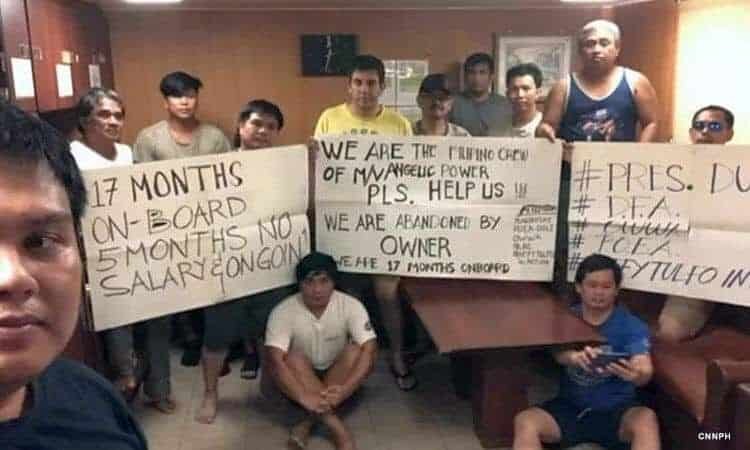 17 MONTHS
ON-BOARD
5 MONTHS NO
SALARY & ONGOIN
WE ARE THE FILIPINO CREW
OF M/V ANGELIC POWER
PLS. HELP US !!!
WE ARE ABANDONED BY
OWNER
WE ARE 17 MONTHS ONBOARD
OWWA
# PRES. DU
# D.F.A.
# P.O.E.A.
TULFO IN
CNNPH